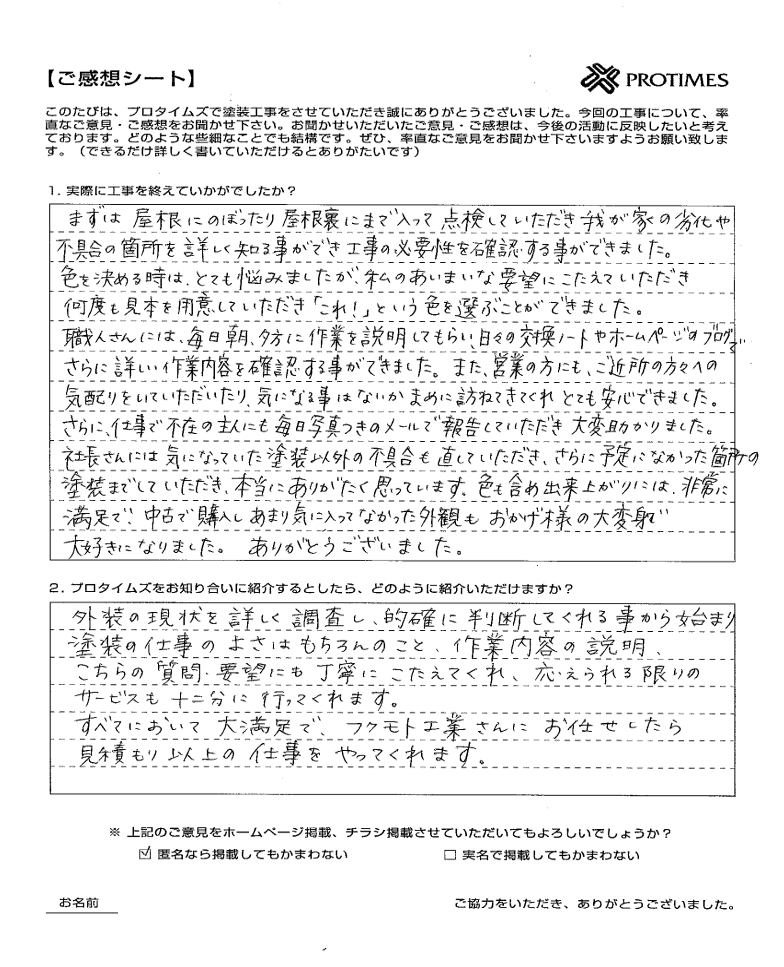 【ご感想シート】
PROTIMES
このたびは、プロタイムズで塗装工事をさせていただき誠にありがとうございました。今回の工事について、率
直なご意見・ご感想をお聞かせ下さい。お聞かせいただいたご意見・ご感想は、今後の活動に反映したいと考え
ております。どのような些細なことでも結構です。ぜひ、率直なご意見をお聞かせ下さいますようお願い致しま
す。（できるだけ詳しく書いていただけるとありがたいです）
1. 実際に工事を終えていかがでしたか？
まずは 屋根にのぼったり屋根裏にまで入って 点検していただき 我が家の劣化や
不具合の箇所を詳しく知る事ができ 工事の必要性を確認する事ができました。
色を決める時は、とても悩みましたが、私のあいまいな要望にこたえていただき
何度も見本を用意していただき「これ！」という色を選ぶことができました。
職人さんには、毎日朝、夕方に作業を説明してもらい、日々の交換ノートやホームページのブログで
さらに詳しい作業内容を確認する事ができました。また、営業の方にも、ご近所の方々への
気配りをしていただいたり、気になる事はないか まめに訪ねてきてくれ とても安心できました。
さらに、仕事で不在の主人にも毎日写真つきのメールで報告していただき 大変助かりました。
社長さんには 気になっていた塗装以外の不具合も直していただき、さらに予定になかった箇所の
塗装までしていただき、本当にありがたく思っています。色も含め出来上がりには、非常に
満足で、中古で購入しあまり気に入ってなかった外観も おかげ様の大変身で
大好きになりました。 ありがとうございました。
2. プロタイムズをお知り合いに紹介するとしたら、どのように紹介いただけますか？
外装の現状を詳しく調査し、的確に判断してくれる事から始まり
塗装の仕事のよさはもちろんのこと、作業内容の説明、
こちらの質問・要望にも丁寧にこたえてくれ、応えられる限りの
サービスも十二分に行ってくれます。
すべてにおいて大満足で、フクモト工業さんにお任せしたら
見積もり以上の仕事をやってくれます。
※ 上記のご意見をホームページ掲載、チラシ掲載させていただいてもよろしいでしょうか？
☑ 匿名なら掲載してもかまわない □ 実名で掲載してもかまわない
お名前 ご協力をいただき、ありがとうございました。